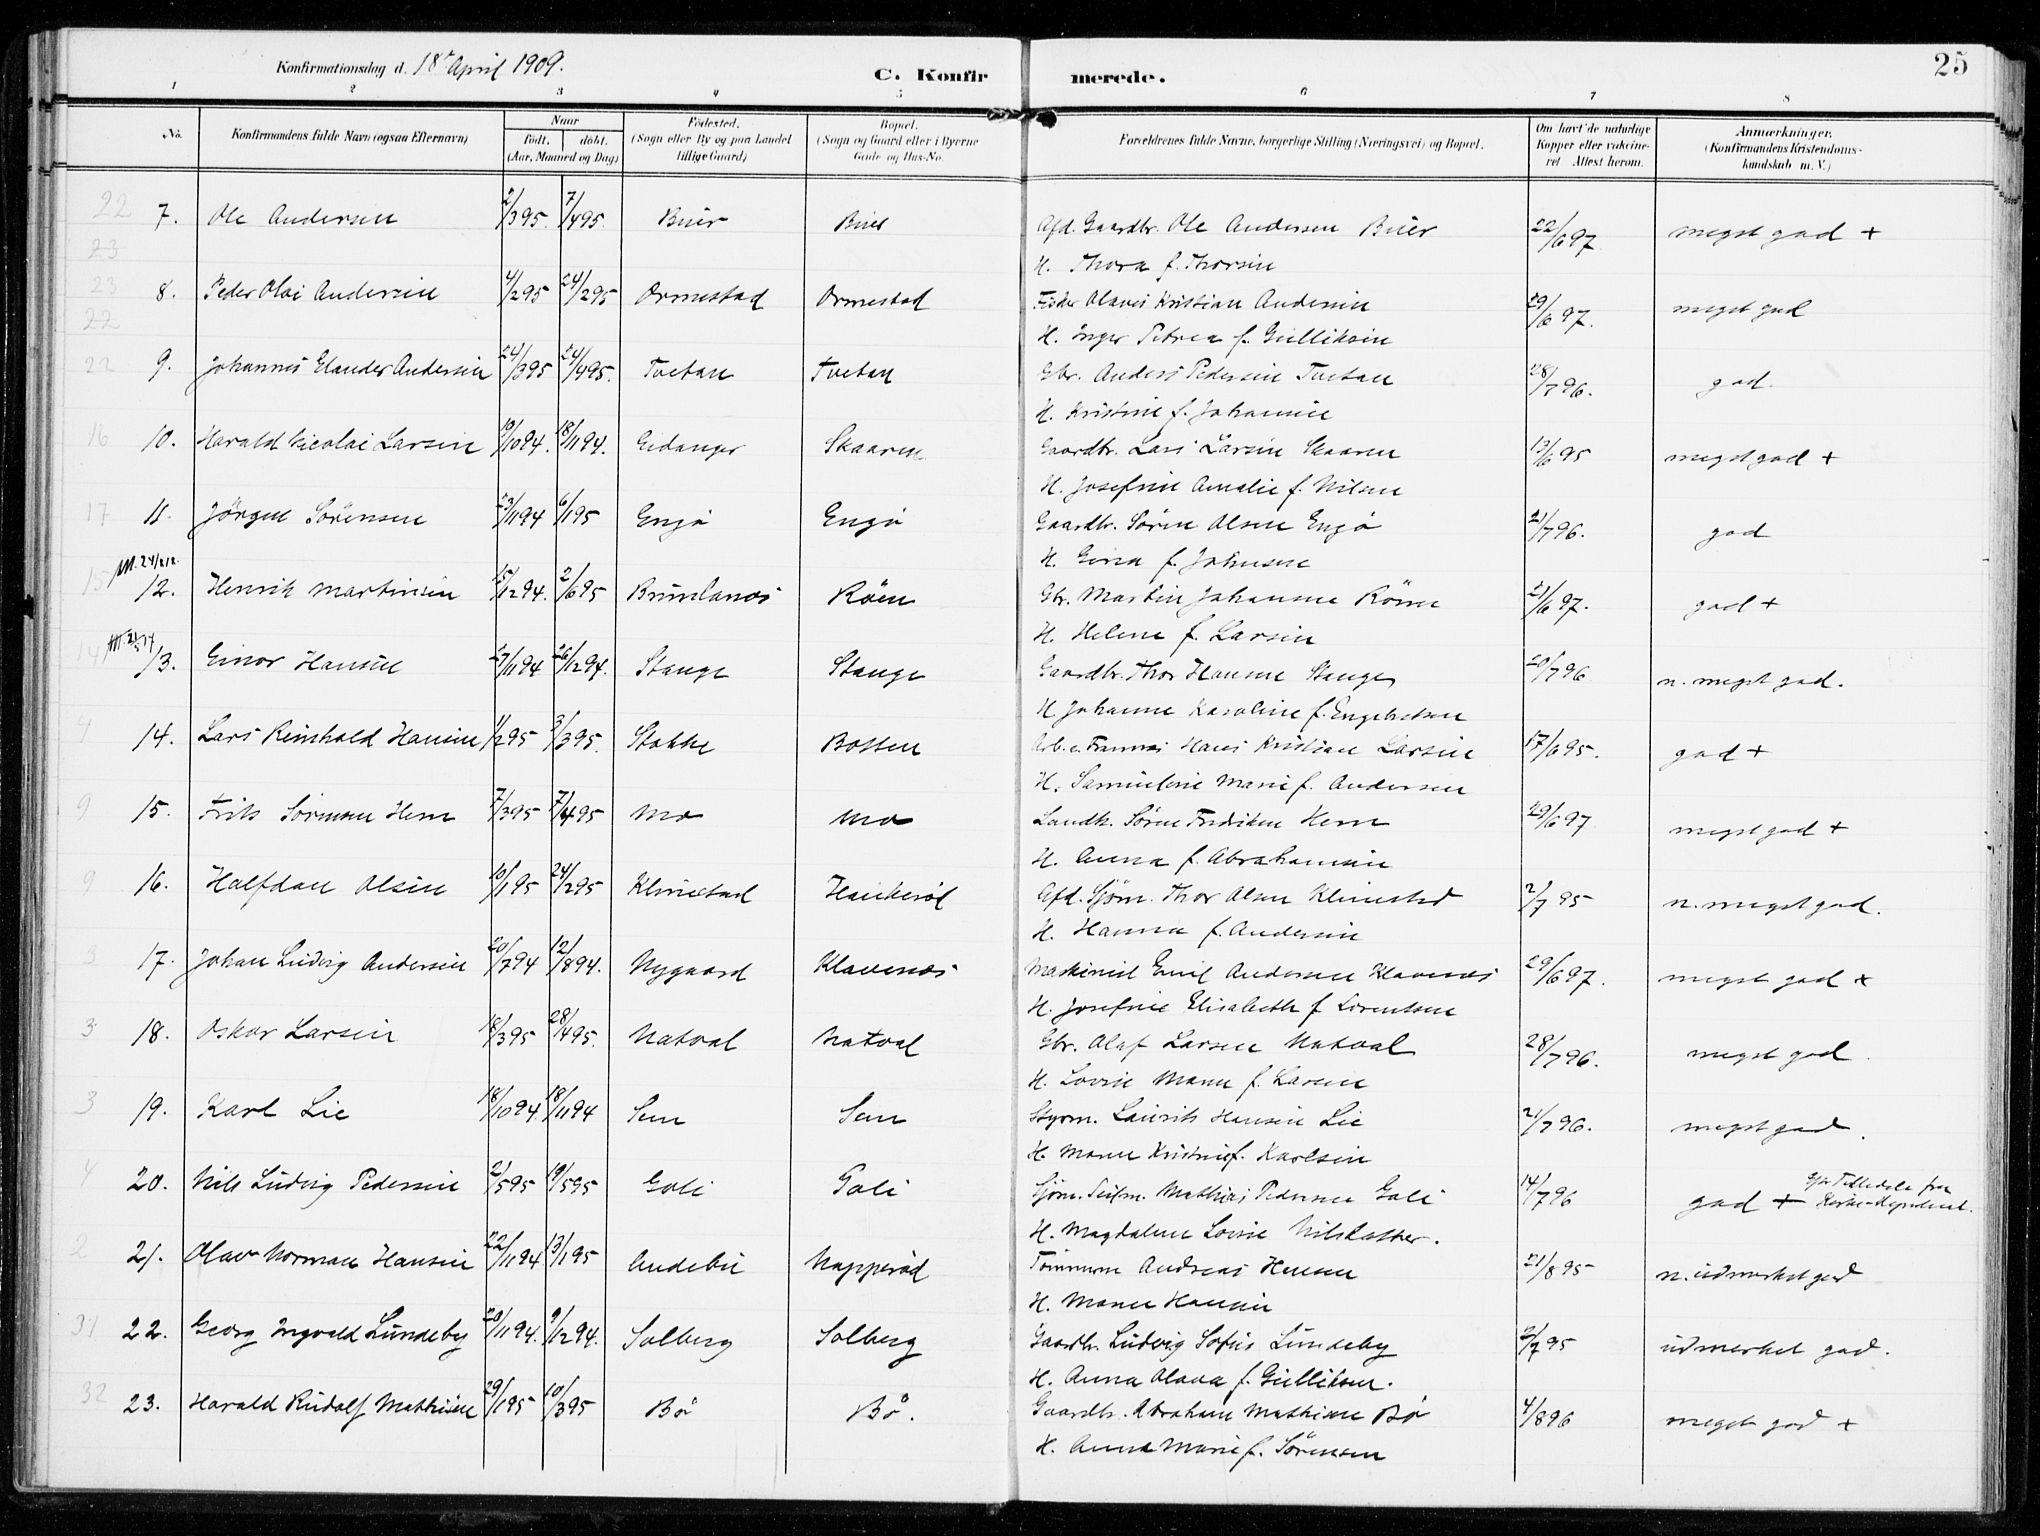 Konfirmationsdag d. 18de April 1909.
C. Konfirmerede.
25
1 2 3 4 5 6 7 8
No. Konfirmandens fulde Navn (ogsaa Efternavn) Naar født. døbt. (Aar, Maaned og Dag) Fødested. (Sogn eller By og paa Landet tillige Gaard) Bopæl. (Sogn og Gaard eller i Byerne Gade og Hus-No. Forældrenes fulde Navne, borgerlige Stilling (Næringsvei) og Bopæl. Om havt de naturlige Kopper eller vaccineret Attest herom. Anmærkninger. (Konfirmandens Kristendomskundskab m. V.)
22 7. Ole Andersen 2/3 95. 7/4 95. Buer Buer Afd. Gaardbr. Ole Andersen Buer 22/6 97. meget god +
23 H. Thora f. Thorsen
23 8. Peder Olai Andersen 4/2 95 24/2 95 Ormestad Ormestad Fisker Olaves Kristian Andersen 29/6 97. meget god
22 H. Inger Petrea f. Gulliksen
22 9. Johannes Elander Andersen 24/3 95 24/4 95. Tvetan Tvetan Gbr. Anders Pedersen Tvetan 28/7 96. god.
H. Kristine f. Johannsen
16 10. Harald Nicolai Larsen 19/10 94. 18/11 94. Eidanger Skaaren Gaardbr. Lars Larsen Skaaren 13/6 95 meget god +
H. Josefine Amalie f. Nilsen
17 11. Jørgen Sørensen 23/11 94 6/1 95 Engø Engø Gaardbr. Søren Olsen Engø 21/7 96. god
H. Gina f. Johnsen
15 12. Henrik Martinsen 15/12 94. 2/6 95 Brunlanes Røen Gbr. Martin Johansen Røen 21/6 97. god +
H. Helene f. Larsen
14 13. Einar Hansen 27/11 94 26/12 94. Stange Stange Gaardbr. Thor Hansen Stange 20/7 96 n. meget god.
H. Johanne Karoline f. Engebretsen
4 14. Lars Reinhold Hansen 1/2 95 3/3 95. Stokke Botten Arb. Hans Kristian Larsen 17/6 95. god +
H. Samueline Marie f. Andersen
9 15. Frits Sørensen Hem 7/3 95 7/4 95 Mo Mo Landh. Søren Fredriksen Hem 29/6 97 meget god +
H. Anna f. Abrahamsen
9 16. Halfdan Olsen 10/1 95 24/2 95 Klinestad Haukerød Afd. Sjøm. Thor Olsen Klinestad 2/7 95 n. meget god.
H. Hanna f. Andersen
3 17. Johan Ludvig Andersen 20/7 94 12/8 94. Nygaard Klavenes Maskinist Emil Andersen Klavenes 29/6 97. meget god +
H. Josefine Elisabeth f. Lorentsen
3 18. Oskar Larsen 18/3 95 28/4 95. Natval Natval Gbr. Olaf Larsen Natval 28/7 96. meget god.
H. Lovise Marie f. Larsen
3 19. Karl Lie 18/10 94 18/11 94 Sem Sem Styrm. Laurits Hansen Lie 21/7 96. meget god.
H. Maren Kristine f. Karlsen
4 20. Nils Ludvig Pedersen 2/5 95 19/5 95 Goli Goli Sjøm. Mathias Pedersen Goli 14/7 96 god + eft. Tilladelse fra Kirke-
H. Magdalene Lovise Nilsdatter.
2 21. Olav Norman Hansen 22/11 94 13/1 95 Andebu Napperød Tømmerm. Andreas Hansen 21/8 95 n. udmerket god
H. Maren Hansen
31 22. Georg Ingvald Lundeby 20/11 94. 9/12 94. Solberg Solberg Gaardbr. Ludvig Sofus Lundeby 2/7 95 udmerket god.
H. Anna Olava f. Gulliksen.
32 23. Harald Rudolf Mathisen 29/1 95 10/3 95 Bø Bø. Gaardbr. Abraham Mathisen Bø 4/8 96 meget god +
H. Anna Marie f. Sørensen